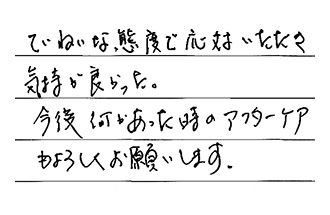 ていねいな態度で応対いただき
気持が良かった。
今後何があった時のアフターケア
もよろしくお願いします.